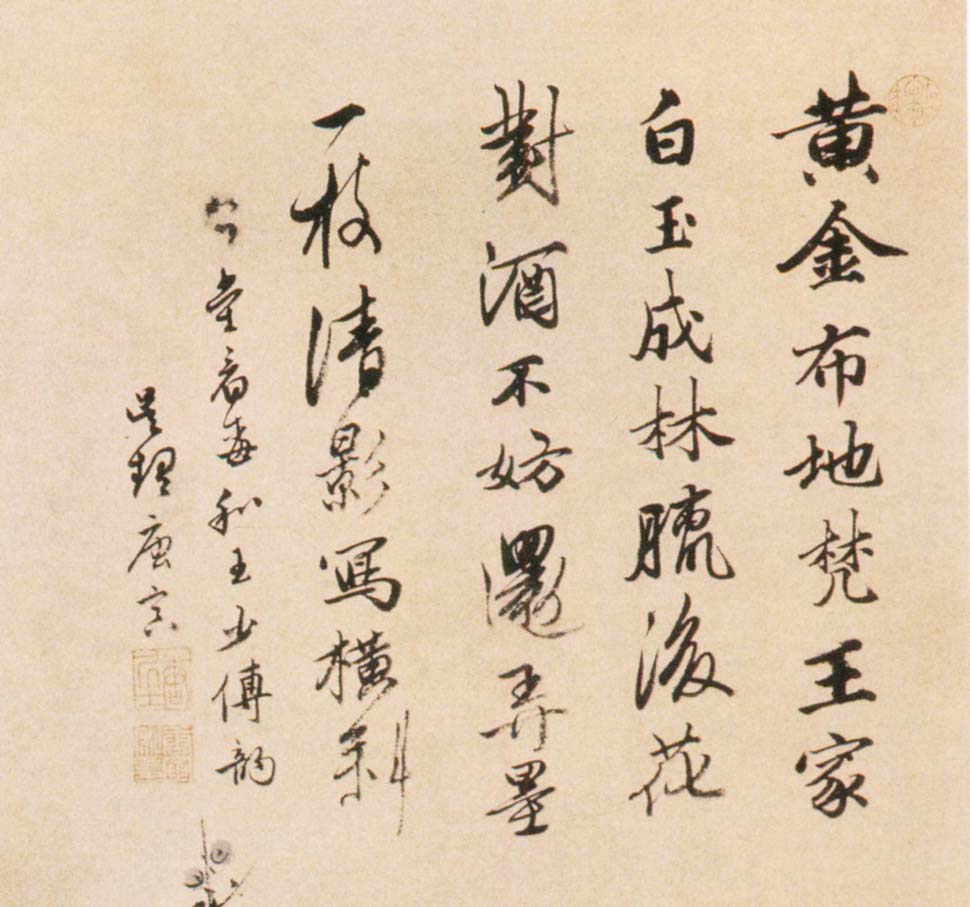 黃金布地梵王家
白玉成林臘後花
對酒不妨還弄墨
一枝清影寫橫斜
堂看梅和王少傅韻
吳趨唐寅